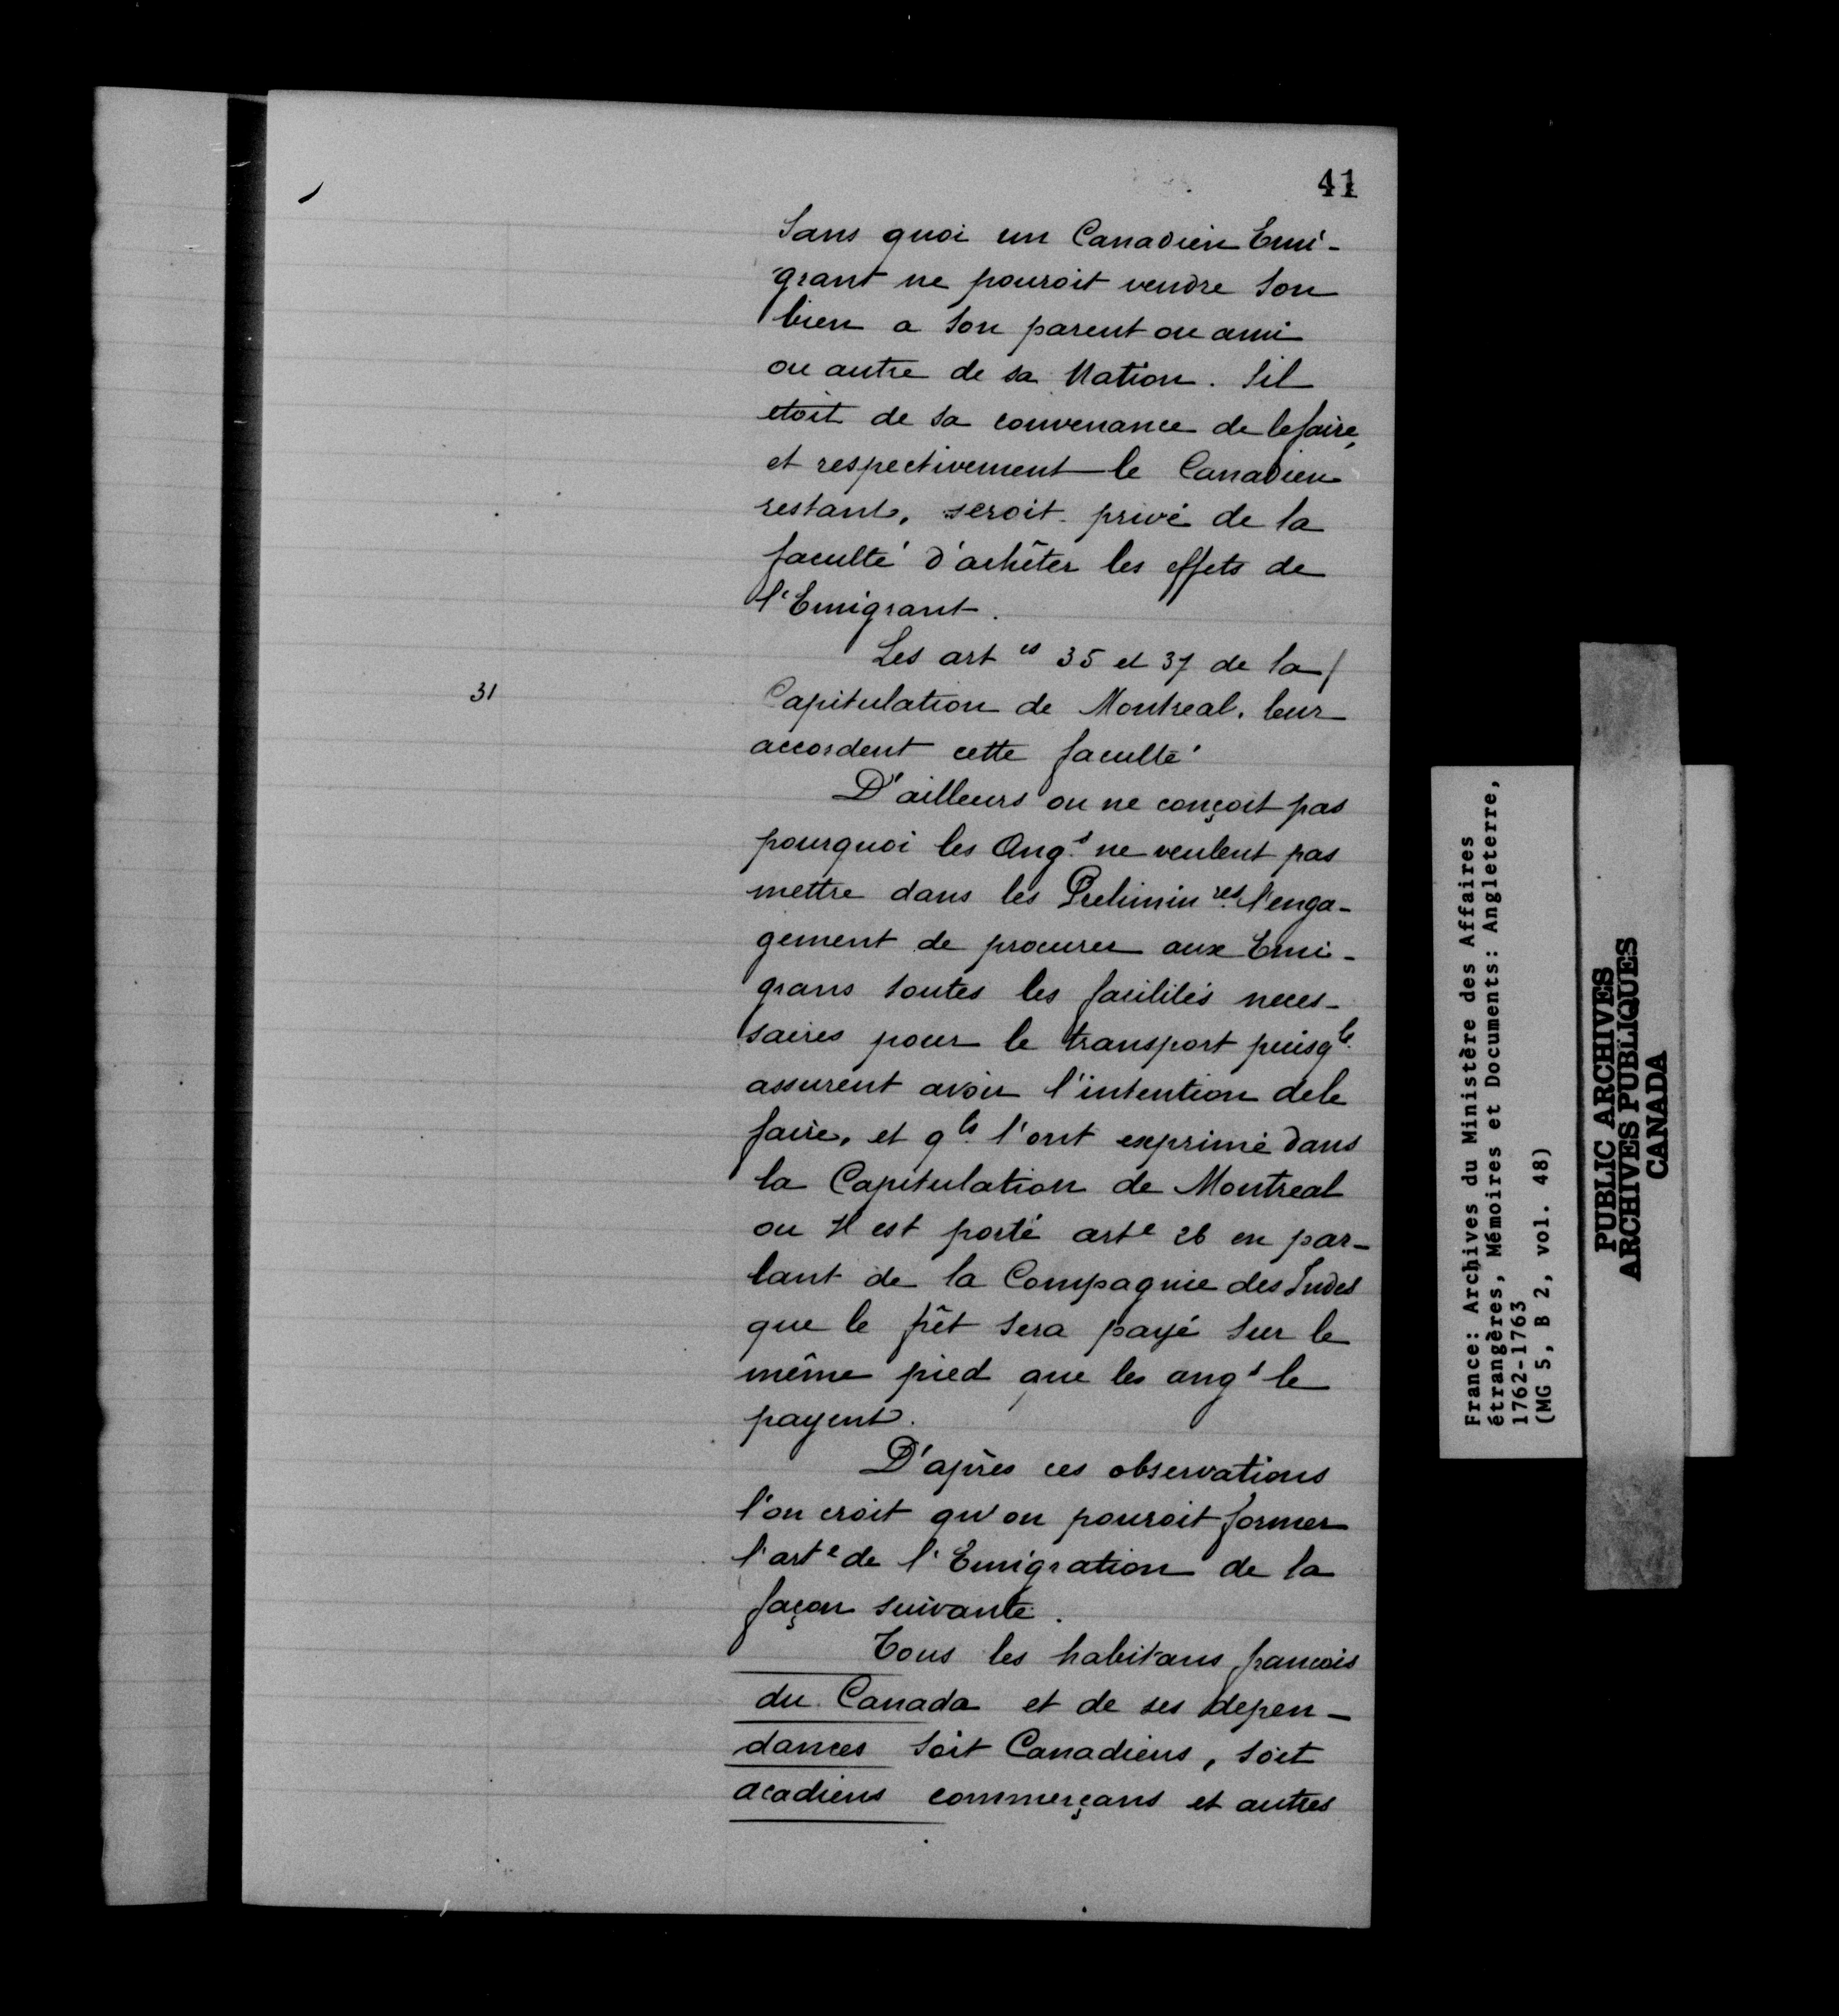 41
Sans quoi un Canadien Emi-
grant ne pouroit vendre Son
bien a Son parent ou ami
ou autre de sa Nation. Sil
etoit de Sa convenance de lefaire,
et respectivement le Canadien
restant, seroit privé de la
faculté d'achêter les effets de
l'Emigrant.
Les art es 35 et 37 de la /
31
Capitulation de Montreal, leur
accordent cette faculté
D'ailleurs on ne conçoit pas
pourquoi les Ang.s ne veulent pas
mettre dans les Prelimin res l'enga-
gement de procurer aux Emi-
grans toutes les facilités neces-
saires pour le transport puisq ls
assurent avoir l'intention dele
faire, et q ls l'ont exprimé dans
la Capitulation de Montreal
ou Il est porté art e 26 en par-
lant de la Compagnie des Indes
que le frêt Sera payé Sur le
même pied que les ang s le
payent.
D'après ces observations
l'on croit qu'on pouroit former
l'art e de l'Emigration de la
façon suivante.
Tous les habitans francois
du Canada et de ses depen-
dances Soit Canadiens, Soit
acadiens commerçans et autres
France: Archives du Ministère des Affaires
étrangères, Mémoires et Documents: Angleterre,
1762-1763
(MG 5, B 2, vol. 48)
PUBLIC ARCHIVES
ARCHIVES PUBLIQUES
CANADA